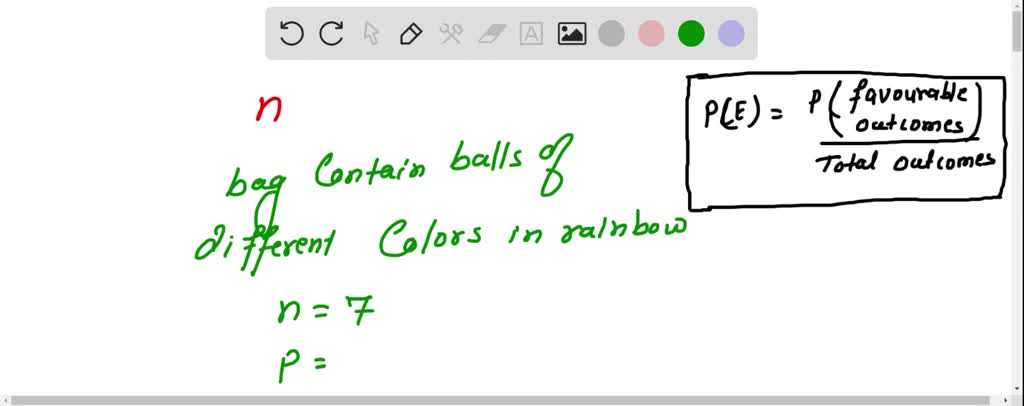 A
n
bag Contain balls of
different Colors in rainbow
n = 7
P =
P(E) = P (favourable
outcomes)
Total outcomes